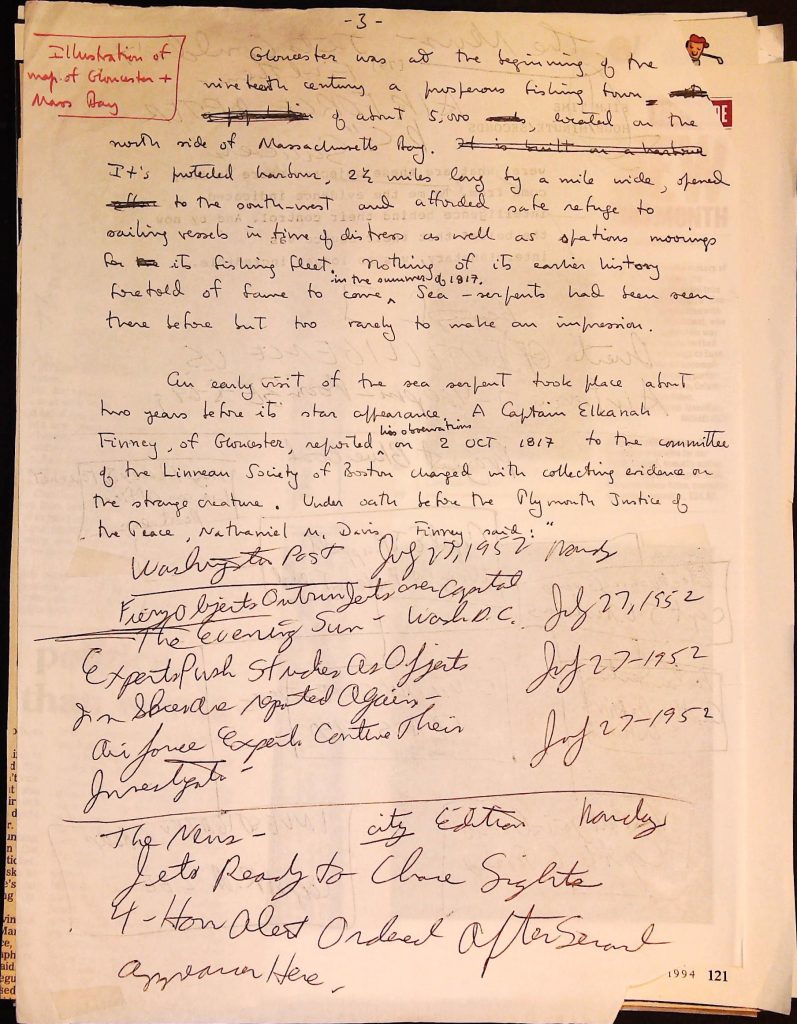 -3-
Illustration of
map of Gloucester +
Mass Bay
Gloucester was at the beginning of the
nineteenth century a prosperous fishing town
of about 5,000 located on the
north side of Massachusetts Bay. It is built on a harbour
It's protected harbour, 2½ miles long by a mile wide, opened
to the south-west and afforded safe refuge to
sailing vessels in time of distress as well as spatious moorings
for its fishing fleet. Nothing of its earlier history
in the summer of 1817.
foretold of fame to come ^ Sea-serpents had been seen
there before but too rarely to make an impression.
An early visit of the sea serpent took place about
two years before its star appearance. A Captain Elkanah
his observations
Finney, of Gloucester, reported ^ on 2 OCT 1817 to the committee
of the Linnean Society of Boston charged with collecting evidence on
the strange creature. Under oath before the Plymouth Justice of
the Peace, Nathaniel M. Davis, Finney said:
Washington Post July 27, 1952 "Monday
Fiery Objects Outrun Jets over Capital
The Evening Sun - Wash D.C. July 27, 1952
Experts Push Studies As Objects July 27-1952
In Skies Are reported Again -
Air force Experts Continue Their July 27-1952
Investigate -
The News - city Edition Monday
Jets Ready to Chase Sights
4-Hour Alert Ordered After Second
Appearance Here.
1994 121